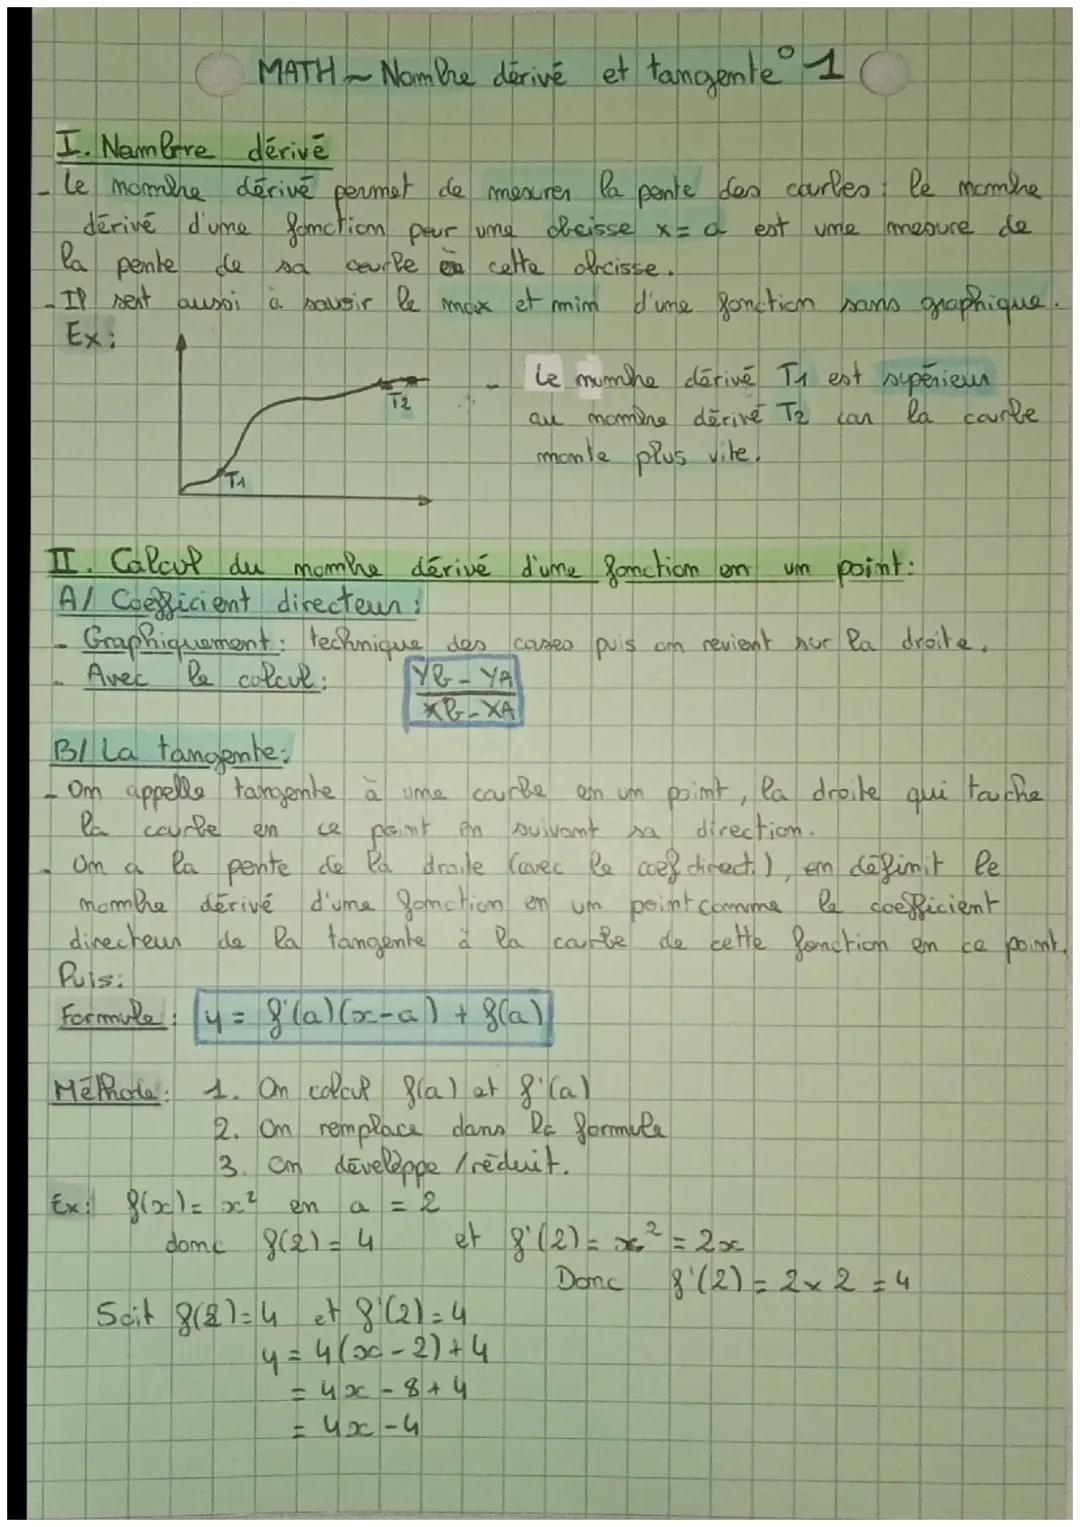 MATH ~ Nombre dérivé et tangente ° 1
I. Nombre dérivé
- Le nombre dérivé permet de mesurer la pente des courbes : le nombre
dérivé d'une fonction pour une abcisse x = a est une mesure de
la pente de sa courbe en cette abcisse.
- Il sert aussi à savoir le max et min d'une fonction sans graphique.
Ex :
T2
T1
- Le nombre dérivé T1 est supérieur
au nombre dérivé T2 car la courbe
monte plus vite.
II. Calcul du nombre dérivé d'une fonction en un point :
A/ Coefficient directeur :
- Graphiquement : technique des cases puis on revient sur la droite.
- Avec le calcul : YB - YA
XB - XA
B/ La tangente :
- On appelle tangente à une courbe en un point, la droite qui touche
la courbe en ce point en suivant sa direction.
- On a la pente de la droite (avec le coef direct.), on définit le
nombre dérivé d'une fonction en un point comme le coefficient
directeur de la tangente à la courbe de cette fonction en ce point.
Puis :
Formule : y = f'(a)(x-a) + f(a)
Méthode : 1. On calcul f(a) et f'(a)
2. On remplace dans la formule
3. On développe / réduit.
Ex : f(x) = x² en a = 2
donc f(2) = 4 et f'(2) = x² = 2x
Donc f'(2) = 2 x 2 = 4
Soit f(2) = 4 et f'(2) = 4
y = 4(x - 2) + 4
= 4x - 8 + 4
= 4x - 4